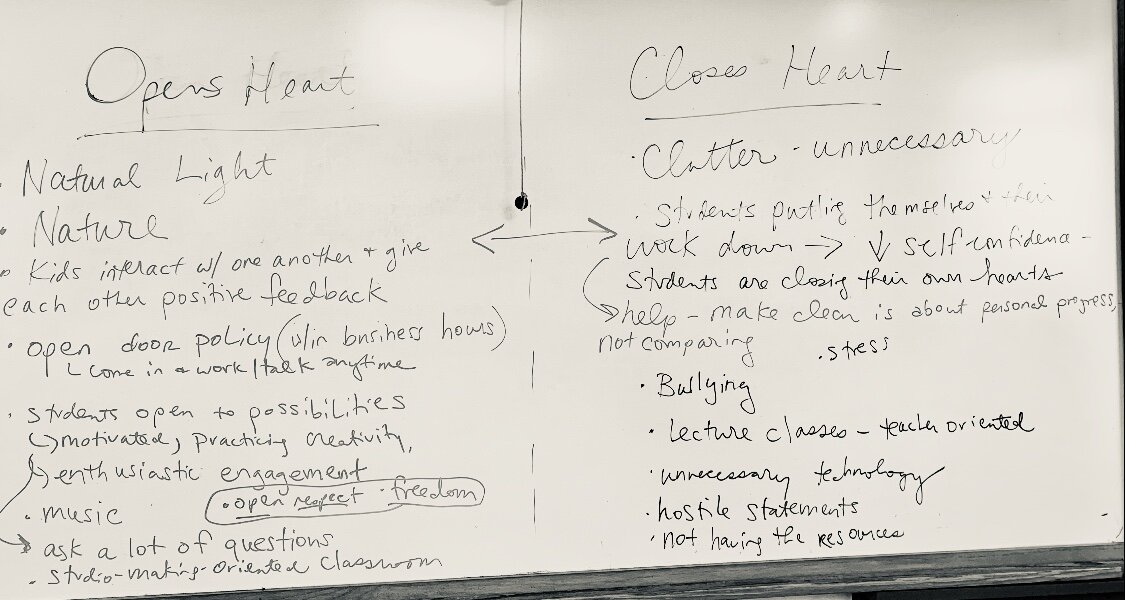 Opens Heart
· Natural Light
· Nature
· Kids interact w/ one another + give
each other positive feedback
· open door policy (w/in business hours)
└ come in + work/talk anytime
· students open to possibilities
↳ motivated, practicing creativity,
↳ enthusiastic engagement
· open respect · freedom
· music
→ ask a lot of questions
· studio-making-oriented classroom
Closes Heart
· Clutter - unnecessary
· Students putting themselves + their
work down → ↓ self confidence -
Students are closing their own hearts
→ help - make clear is about personal progress,
not comparing
· stress
· Bullying
· Lecture classes - teacher oriented
· unnecessary technology
· hostile statements
· not having the resources